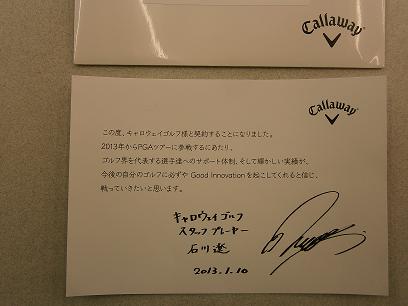 Callaway
Callaway
この度、キャロウェイゴルフ様と契約することになりました。
2013年からPGAツアーに参戦するにあたり、
ゴルフ界を代表する選手達へのサポート体制、そして輝かしい実績が、
今後の自分のゴルフに必ずや Good Innovationを起こしてくれると信じ、
戦っていきたいと思います。
キャロウェイゴルフ
スタッフプレーヤー
石川遼
2013.1.10